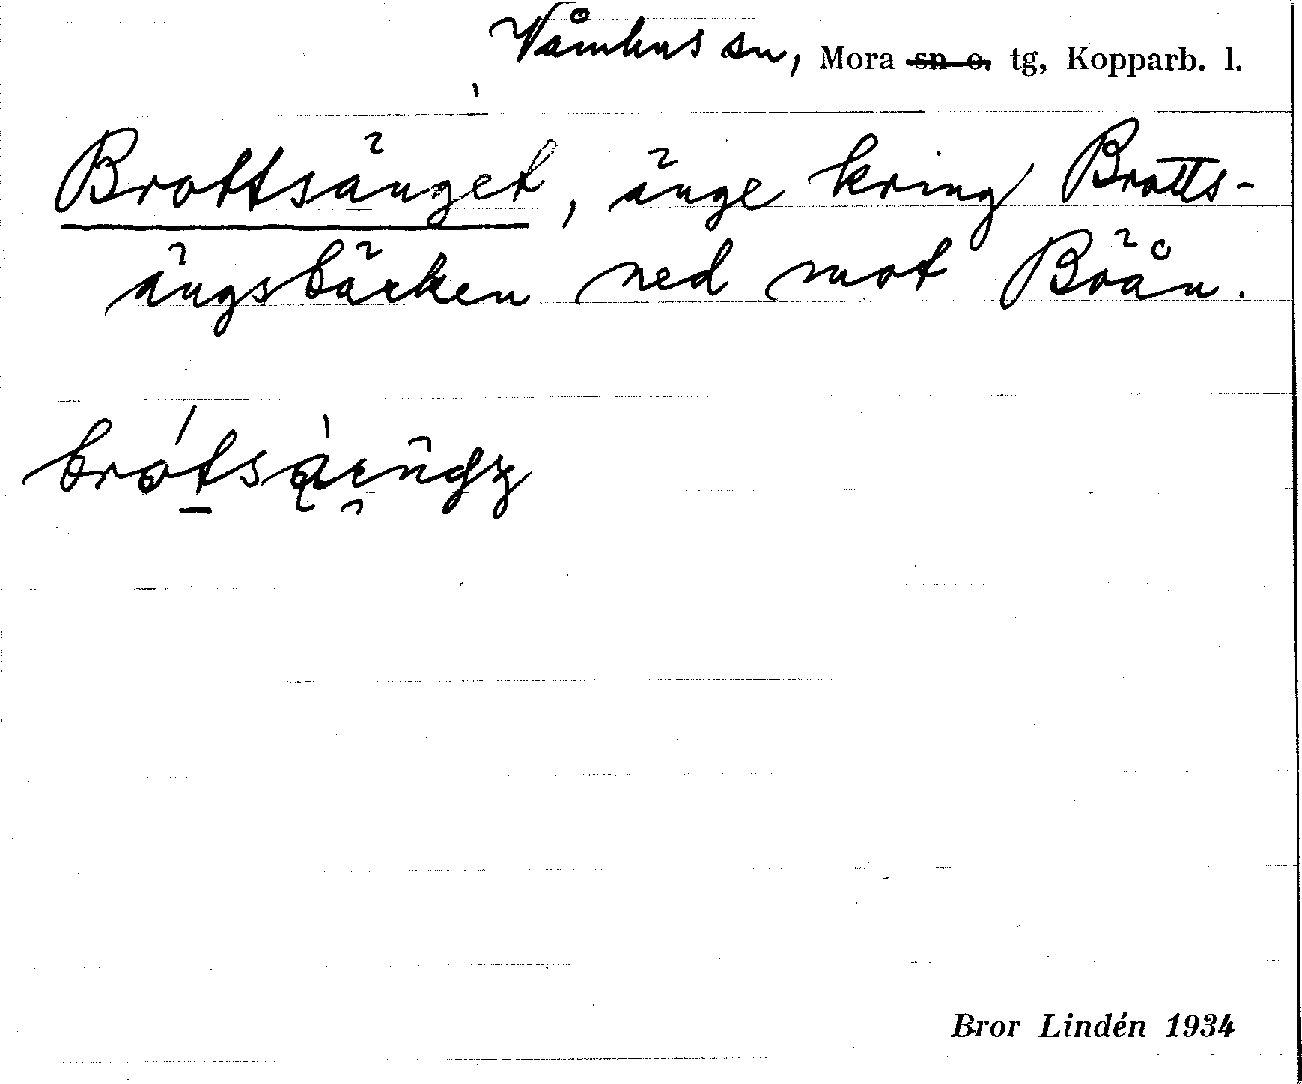 Våmhus sn, Mora sn o. tg, Kopparb. l.
Brottsänget, änge kring Brotts-
ängsbäcken ned mot Böån.
Bror Lindén 1934